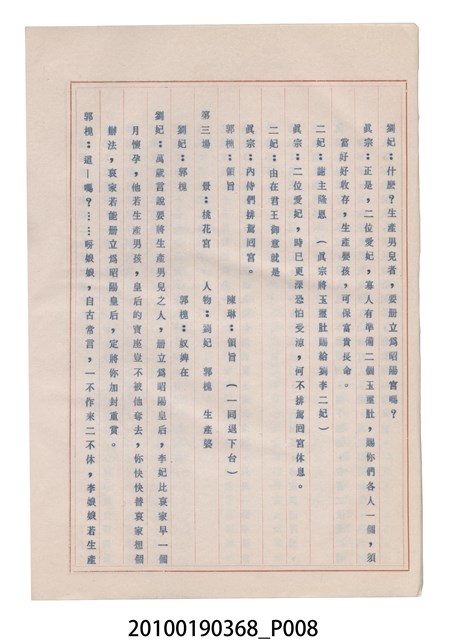 劉妃：什麽？生產男兒者，要册立爲昭陽宮嗎？
眞宗：正是，二位愛妃，寡人有準備二個玉璽肚，賜你們各人一個，須
當好好收存，生產嬰孩，可保富貴長命。
二妃：謝主隆恩　（眞宗將玉璽肚賜給劉李二妃）
眞宗：二位愛妃，時已更深恐怕受涼，何不排駕囘宮休息。
二妃：由在君王御意就是
眞宗：內侍們排駕囘宮。
郭槐：領旨　陳琳：領旨　（一同退下台）
第三場　景：桃花宮　人物：劉妃　郭槐　生產婆
劉妃：郭槐　郭槐：奴婢在
劉妃：萬歲言說要將生產男兒之人，册立爲昭陽皇后，李妃比哀家早一個
月懷孕，他若生產男孩，皇后的寶座豈不被他奪去，你快快替哀家想個
辦法，哀家若能册立爲昭陽皇后，定將你加封重賞。
郭槐：這－嗎？……呀娘娘，自古常言，一不作來二不休，李娘娘若生產
20100190368_P008